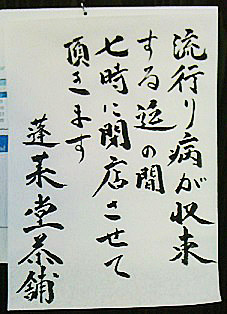 流行り病が収束
する迄の間
七時に閉店させて
頂きます
蓬莱堂茶舗